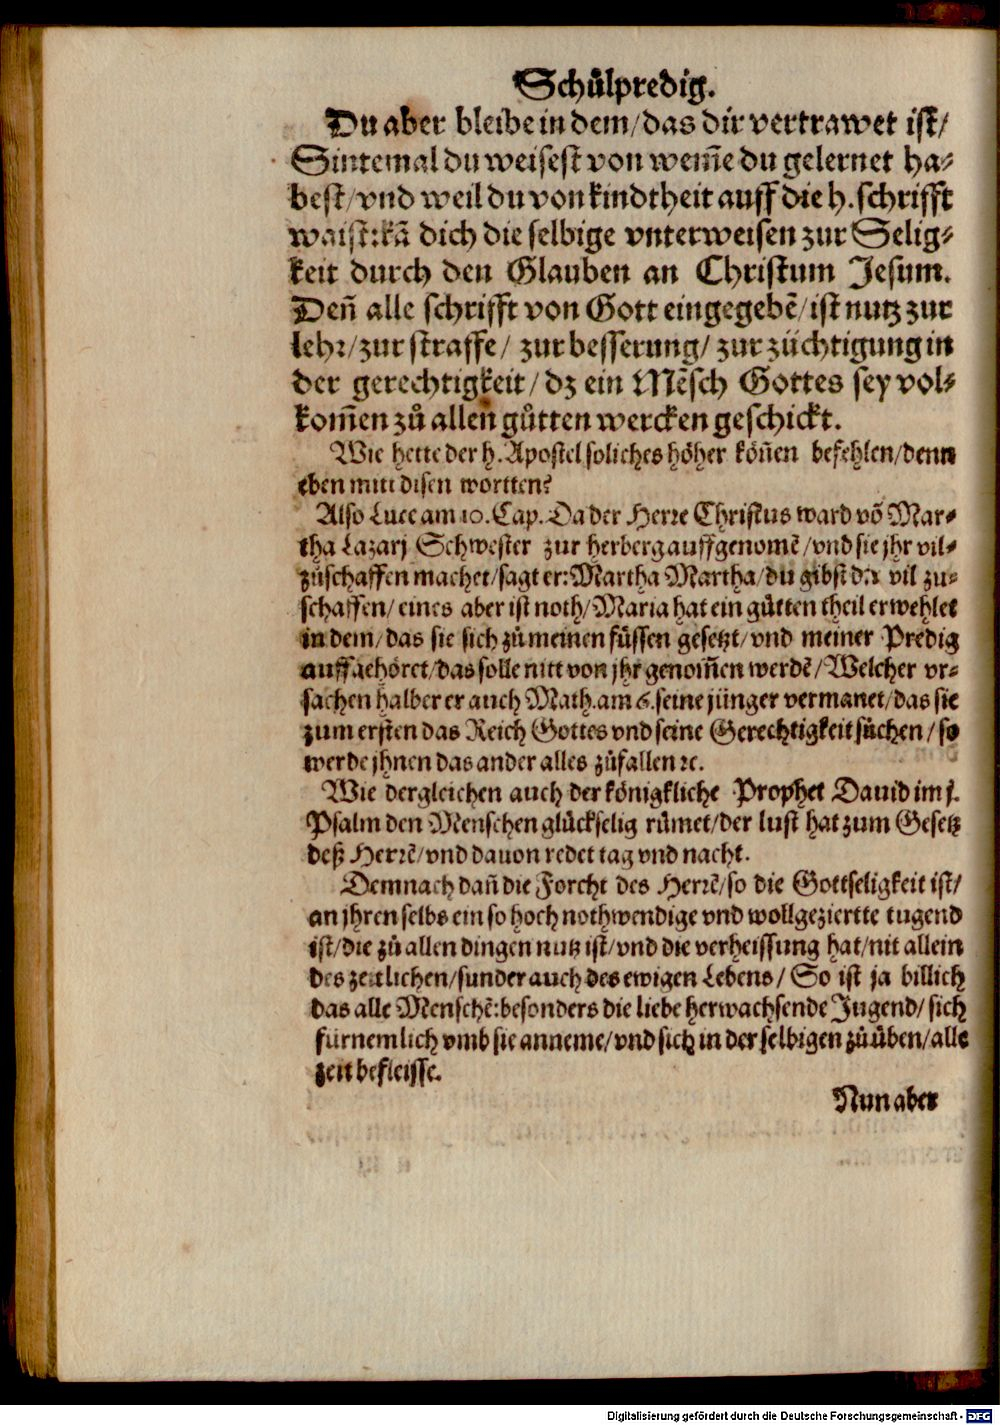 Schůlpredig.
Du aber bleibe in dem/ das dir vertrawet ist/
Sintemal du weisest von wem̃e du gelernet ha⸗
best/ vnd weil du von kindtheit auff die h. schrifft
waist: kã dich die selbige vnterweisen zur Selig⸗
keit durch den Glauben an Christum Jesum.
Deñ alle schrifft von Gott eingegebẽ/ ist nutz zur
lehr/ zur straffe/ zur besserung/ zur züchtigung in
der gerechtigkeit/ dz ein Mẽsch Gottes sey vol⸗
kom̃en zů allen gůtten wercken geschickt.
Wie hette der h. Apostel soliches höher köñen befehlen/ denn
eben mitt disen wortten?
Also Luce am 10. Cap. Da der Herre Christus ward võ Mar⸗
tha Lazarj Schwester zur herberg auffgenomẽ/ vnd sie jhr vil⸗
zůschaffen machet/ sagt er: Martha Martha/ du gibst dir vil zu⸗
schaffen/ eines aber ist noth/ Maria hat ein gůtten theil erwehlet
in dem/ das sie sich zů meinen füssen gesetzt/ vnd meiner Predig
auffgehöret/ das solle nitt von jhr genom̃en werdẽ/ Welcher vr⸗
sachen halber er auch Math. am 6. seine jünger vermanet/ das sie
zum ersten das Reich Gottes vnd seine Gerechtigkeit sůchen/ so
werde jhnen das ander alles zůfallen ꝛc.
Wie dergleichen auch der königkliche Prophet Dauid im j.
Psalm den Menschen glückselig rümet/ der lust hat zum Gesetz
deß Herrẽ/ vnd dauon redet tag vnd nacht.
Demnach dañ die Forcht des Herrẽ/ so die Gottseligkeit ist/
an jhren selbs ein so hoch nothwendige vnd wollgeziertte tugend
ist/ die zů allen dingen nutz ist/ vnd die verheissung hat/ nit allein
des zeitlichen/ sunder auch des ewigen Lebens/ So ist ja billich
das alle Menschẽ: besonders die liebe herwachsende Jugend/ sich
fürnemlich vmb sie anneme/ vnd sich in der selbigen zů üben/ alle
zeit befleisse.
Nun aber
Digitalisierung gefördert durch die Deutsche Forschungsgemeinschaft - DFG